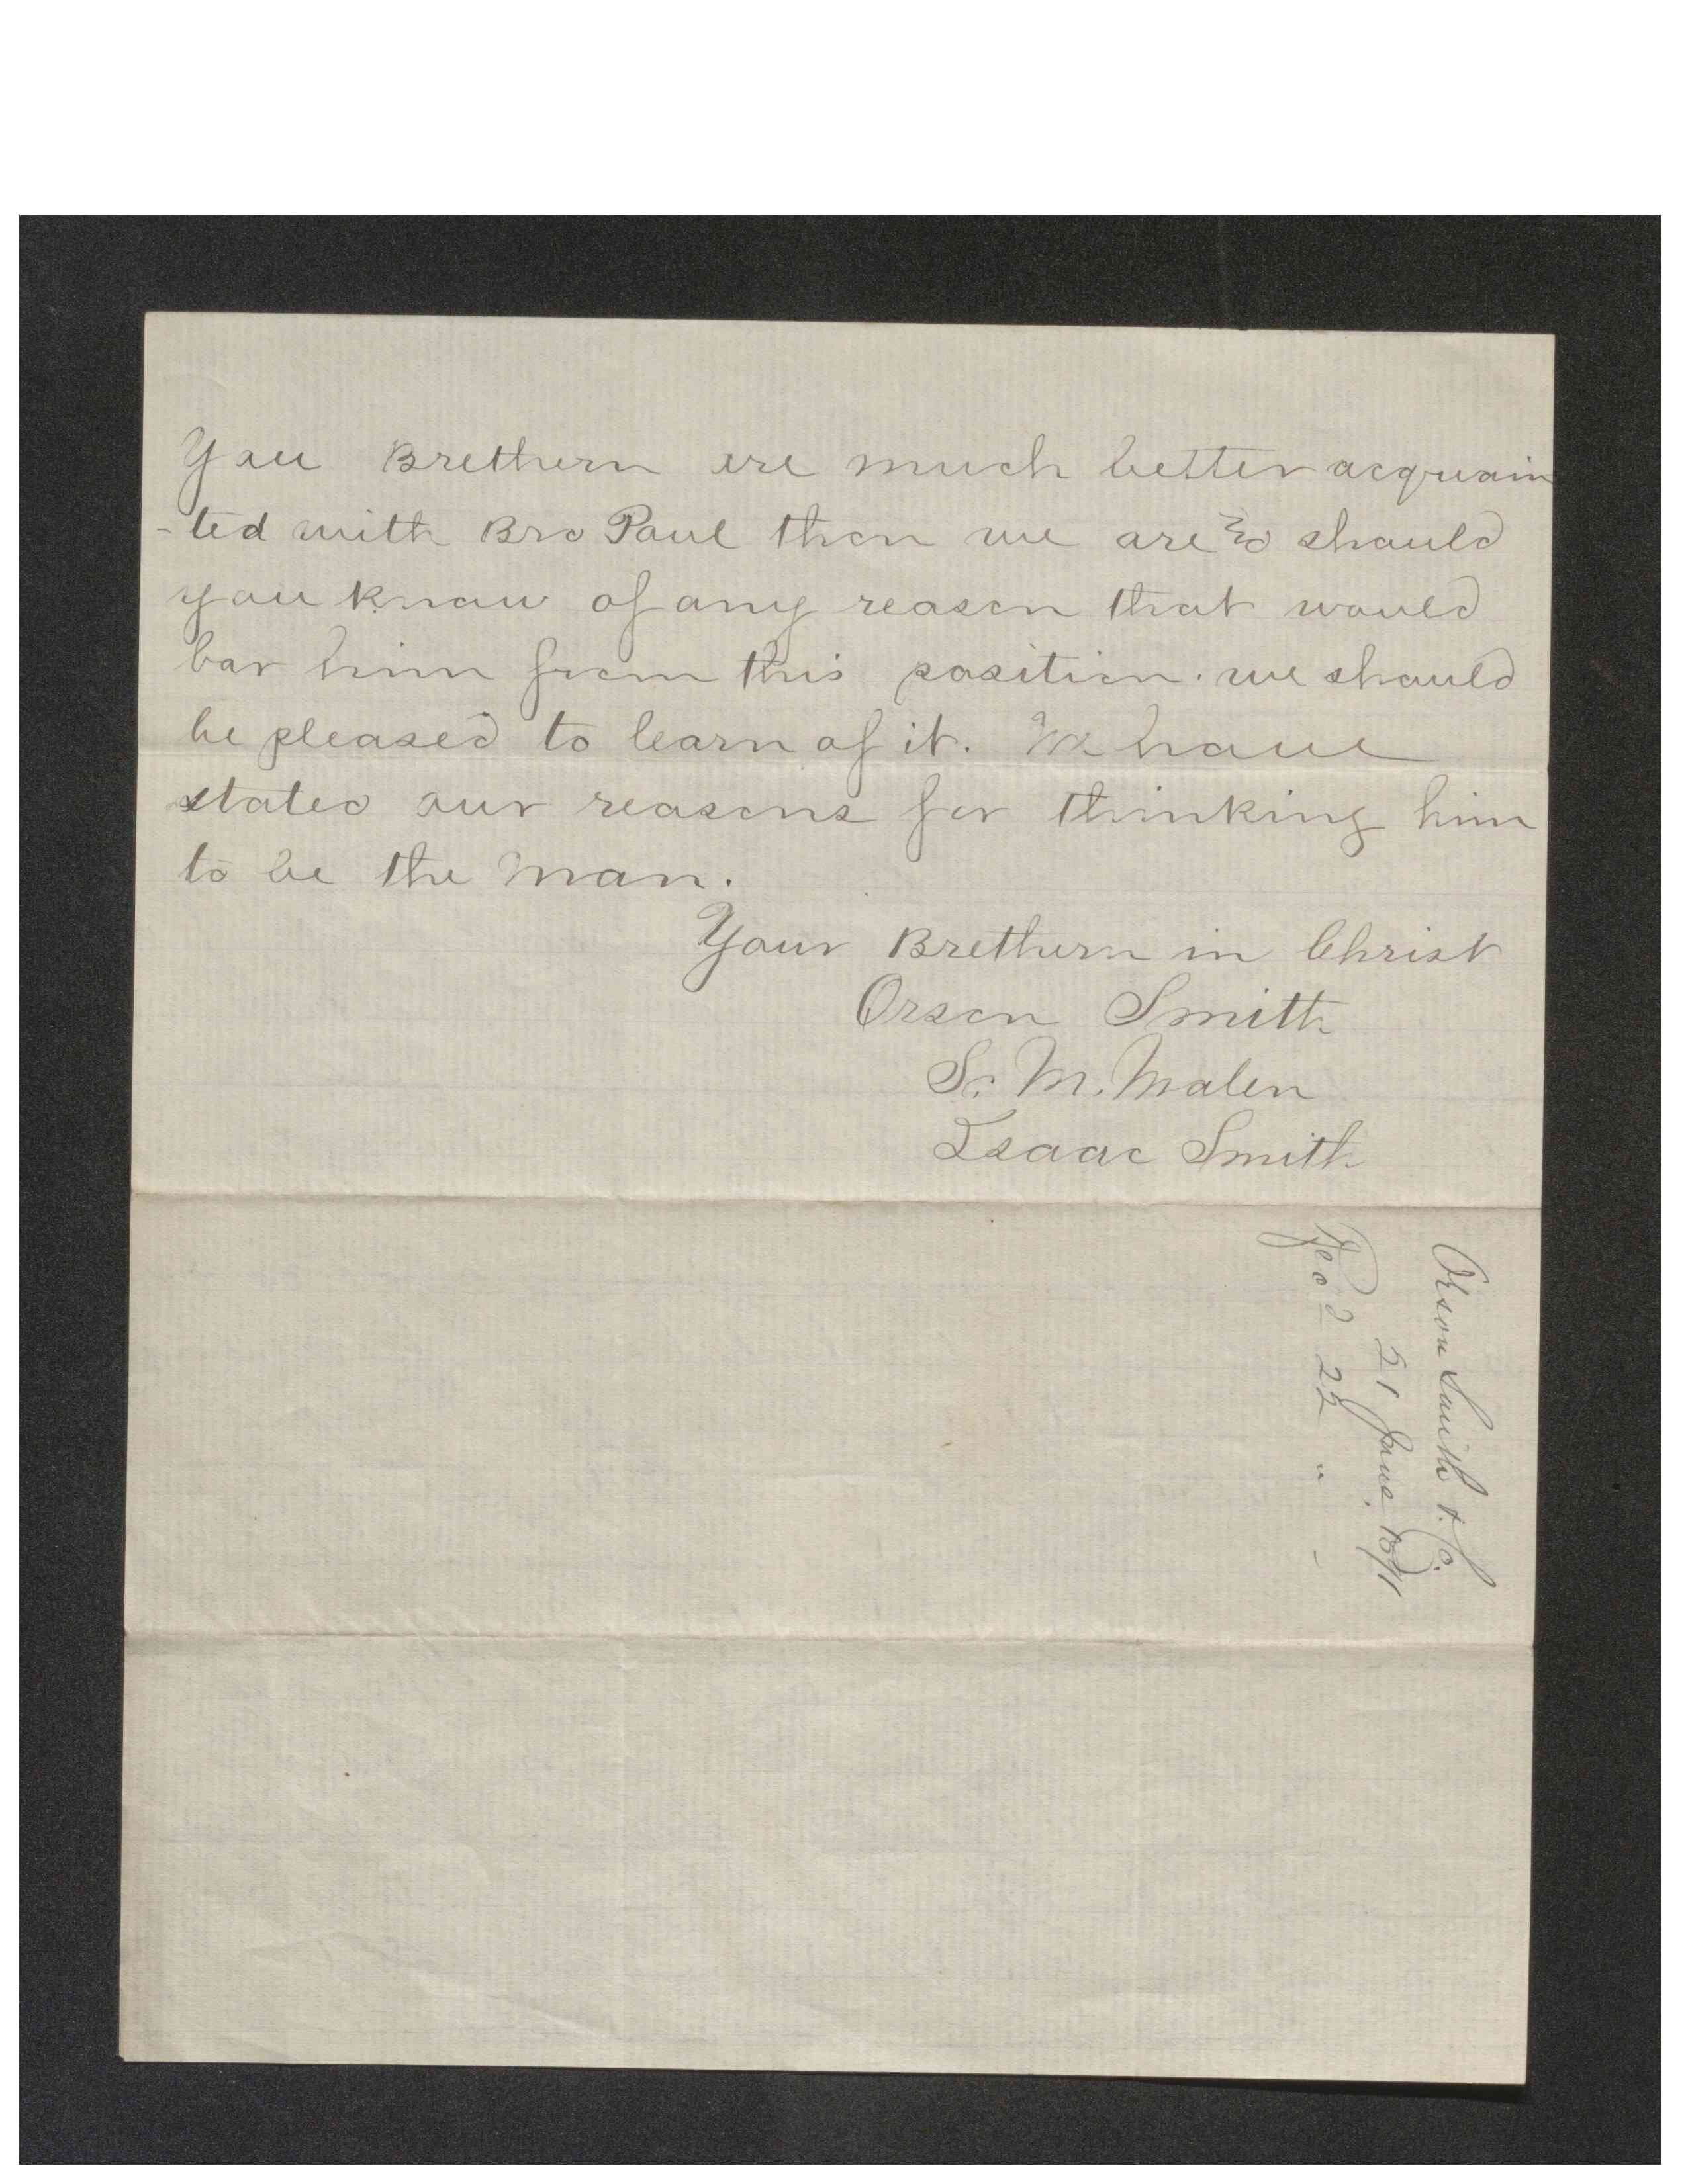 You Brethern are much better acquain
-ted with Bro Paul then we are & should
you know of any reason that would
bar him from this position. we should
be pleased to learn of it. We have
stated our reasons for thinking him
to be the man.
Your Brethern in Christ
Orson Smith
S. M. Malen
Isaac Smith
Orson Smith & Co.
21 June. 1891
Rec'd 22 " "